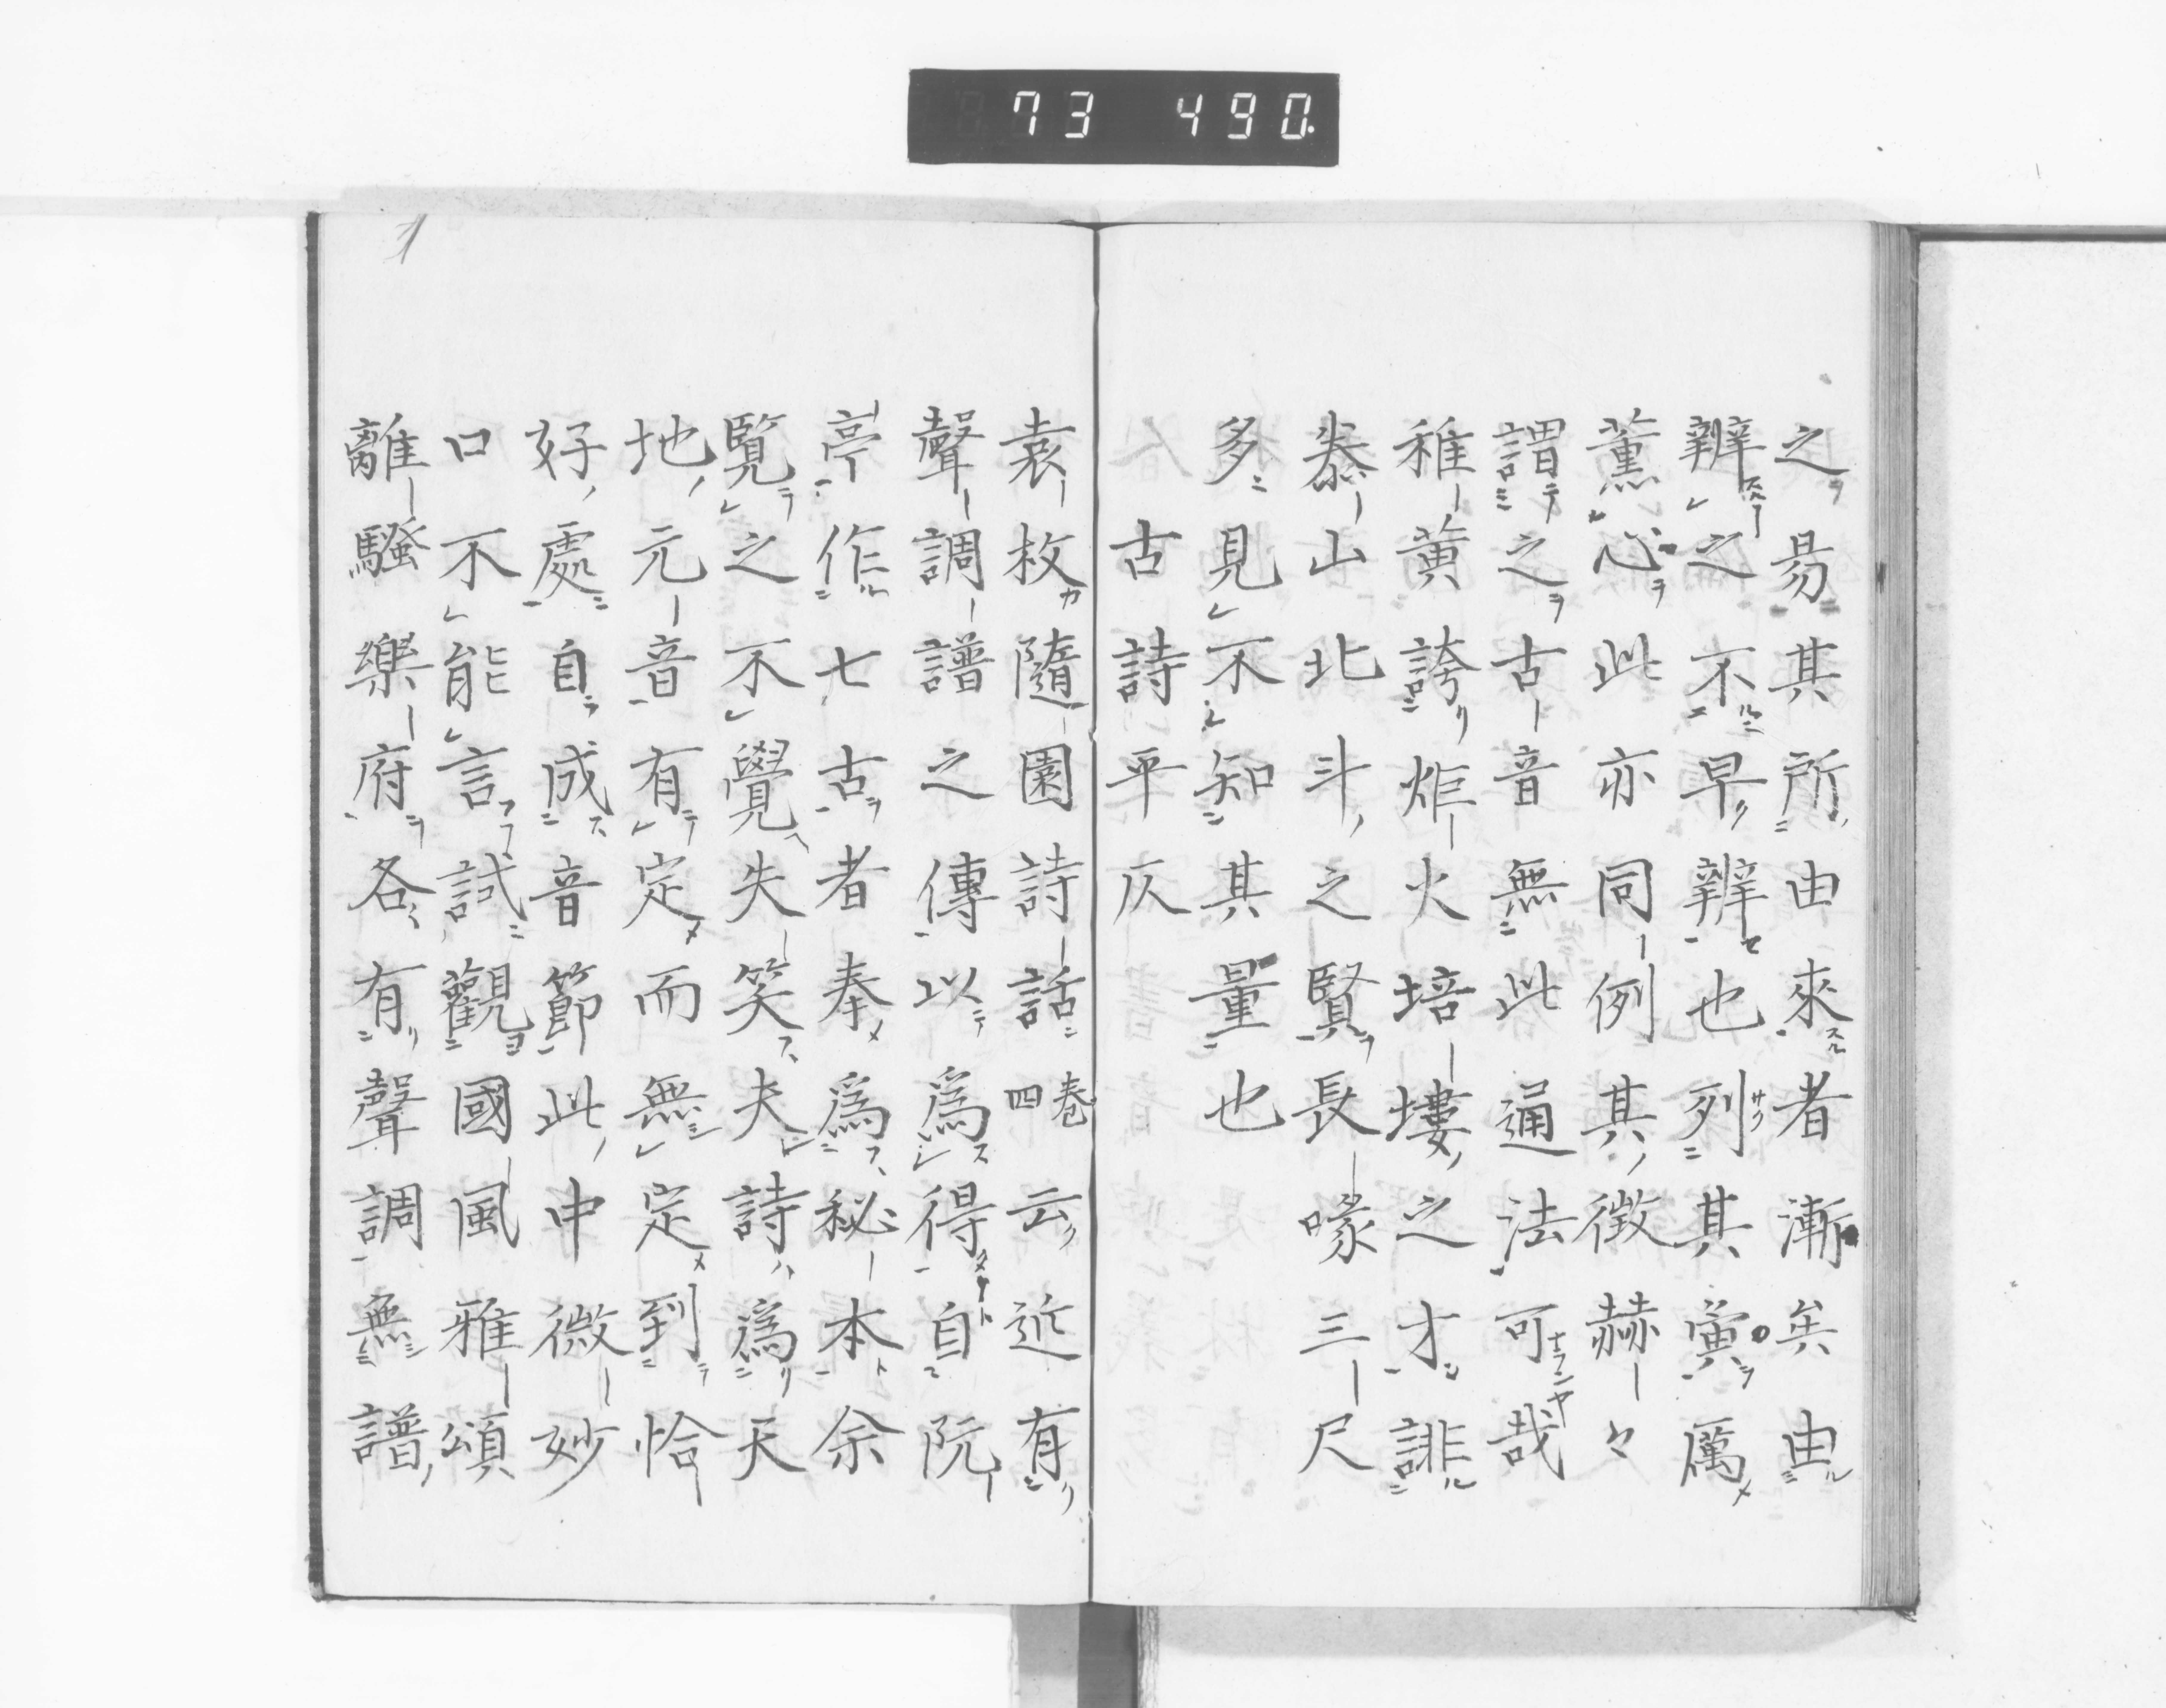 73 490.
之易其所由來者漸矣由
辨之不早辨也列其夤厲
薫心此亦同例其徴赫々
謂之古音無此通法可哉
稚黄誇炬火培塿之才誹
泰山北斗之賢長喙三尺
多見不知其量也
古詩平仄
袁枚隨園詩話四巻云近有
聲調譜之傳以為得自阮
亭作七古者奉為秘本余
覽之不覺失笑夫詩為天
地元音有定而無定到恰
好處自成音節此中微妙
口不能言試觀國風雅頌
離騷樂府各有聲調無譜